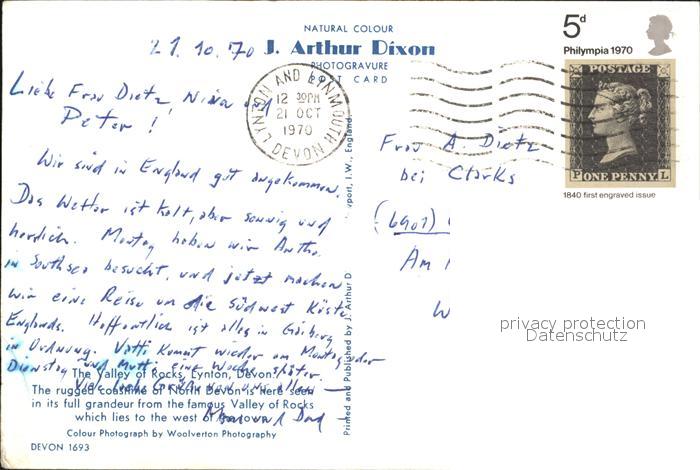 NATURAL COLOUR
21.10.70 J. Arthur Dixon
PHOTOGRAVURE
POST CARD
Liebe Frau Dietz, Nina und
Peter!
Wir sind in England gut angekommen.
Das Wetter ist kalt, aber sonnig und
herrlich. Montag haben wir Anth.
in Southsea besucht, und jetzt machen
wir eine Reise um die südwest Küste
Englands. Hoffentlich ist alles in
in Ordnung. Vati kommt wieder am Montag oder
Dienstag und Mutti eine Woche später.
Viele liebe Grüße von uns allen
Mom und Dad
The Valley of Rocks, Lynton, Devon.
The rugged coastline of North Devon is here seen
in its full grandeur from the famous Valley of Rocks
which lies to the west of the town.
Colour Photograph by Woolverton Photography
DEVON 1693
Printed and Published by J. Arthur D
wport, I.W., England.
LYNTON AND LYNMOUTH
12 30PM
21 OCT
1970
DEVON
5d
Philympia 1970
POSTAGE
ONE PENNY
P L
1840 first engraved issue
Frau A. Dietz
bei Clarks
(6901)
Am
W
privacy protection
Datenschutz